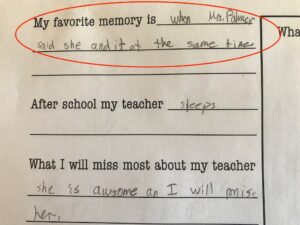 My favorite memory is when Ms. Palmer
said she and it at the same time
After school my teacher sleeps
What I will miss most about my teacher
she is awsome an I will
her.
Wha